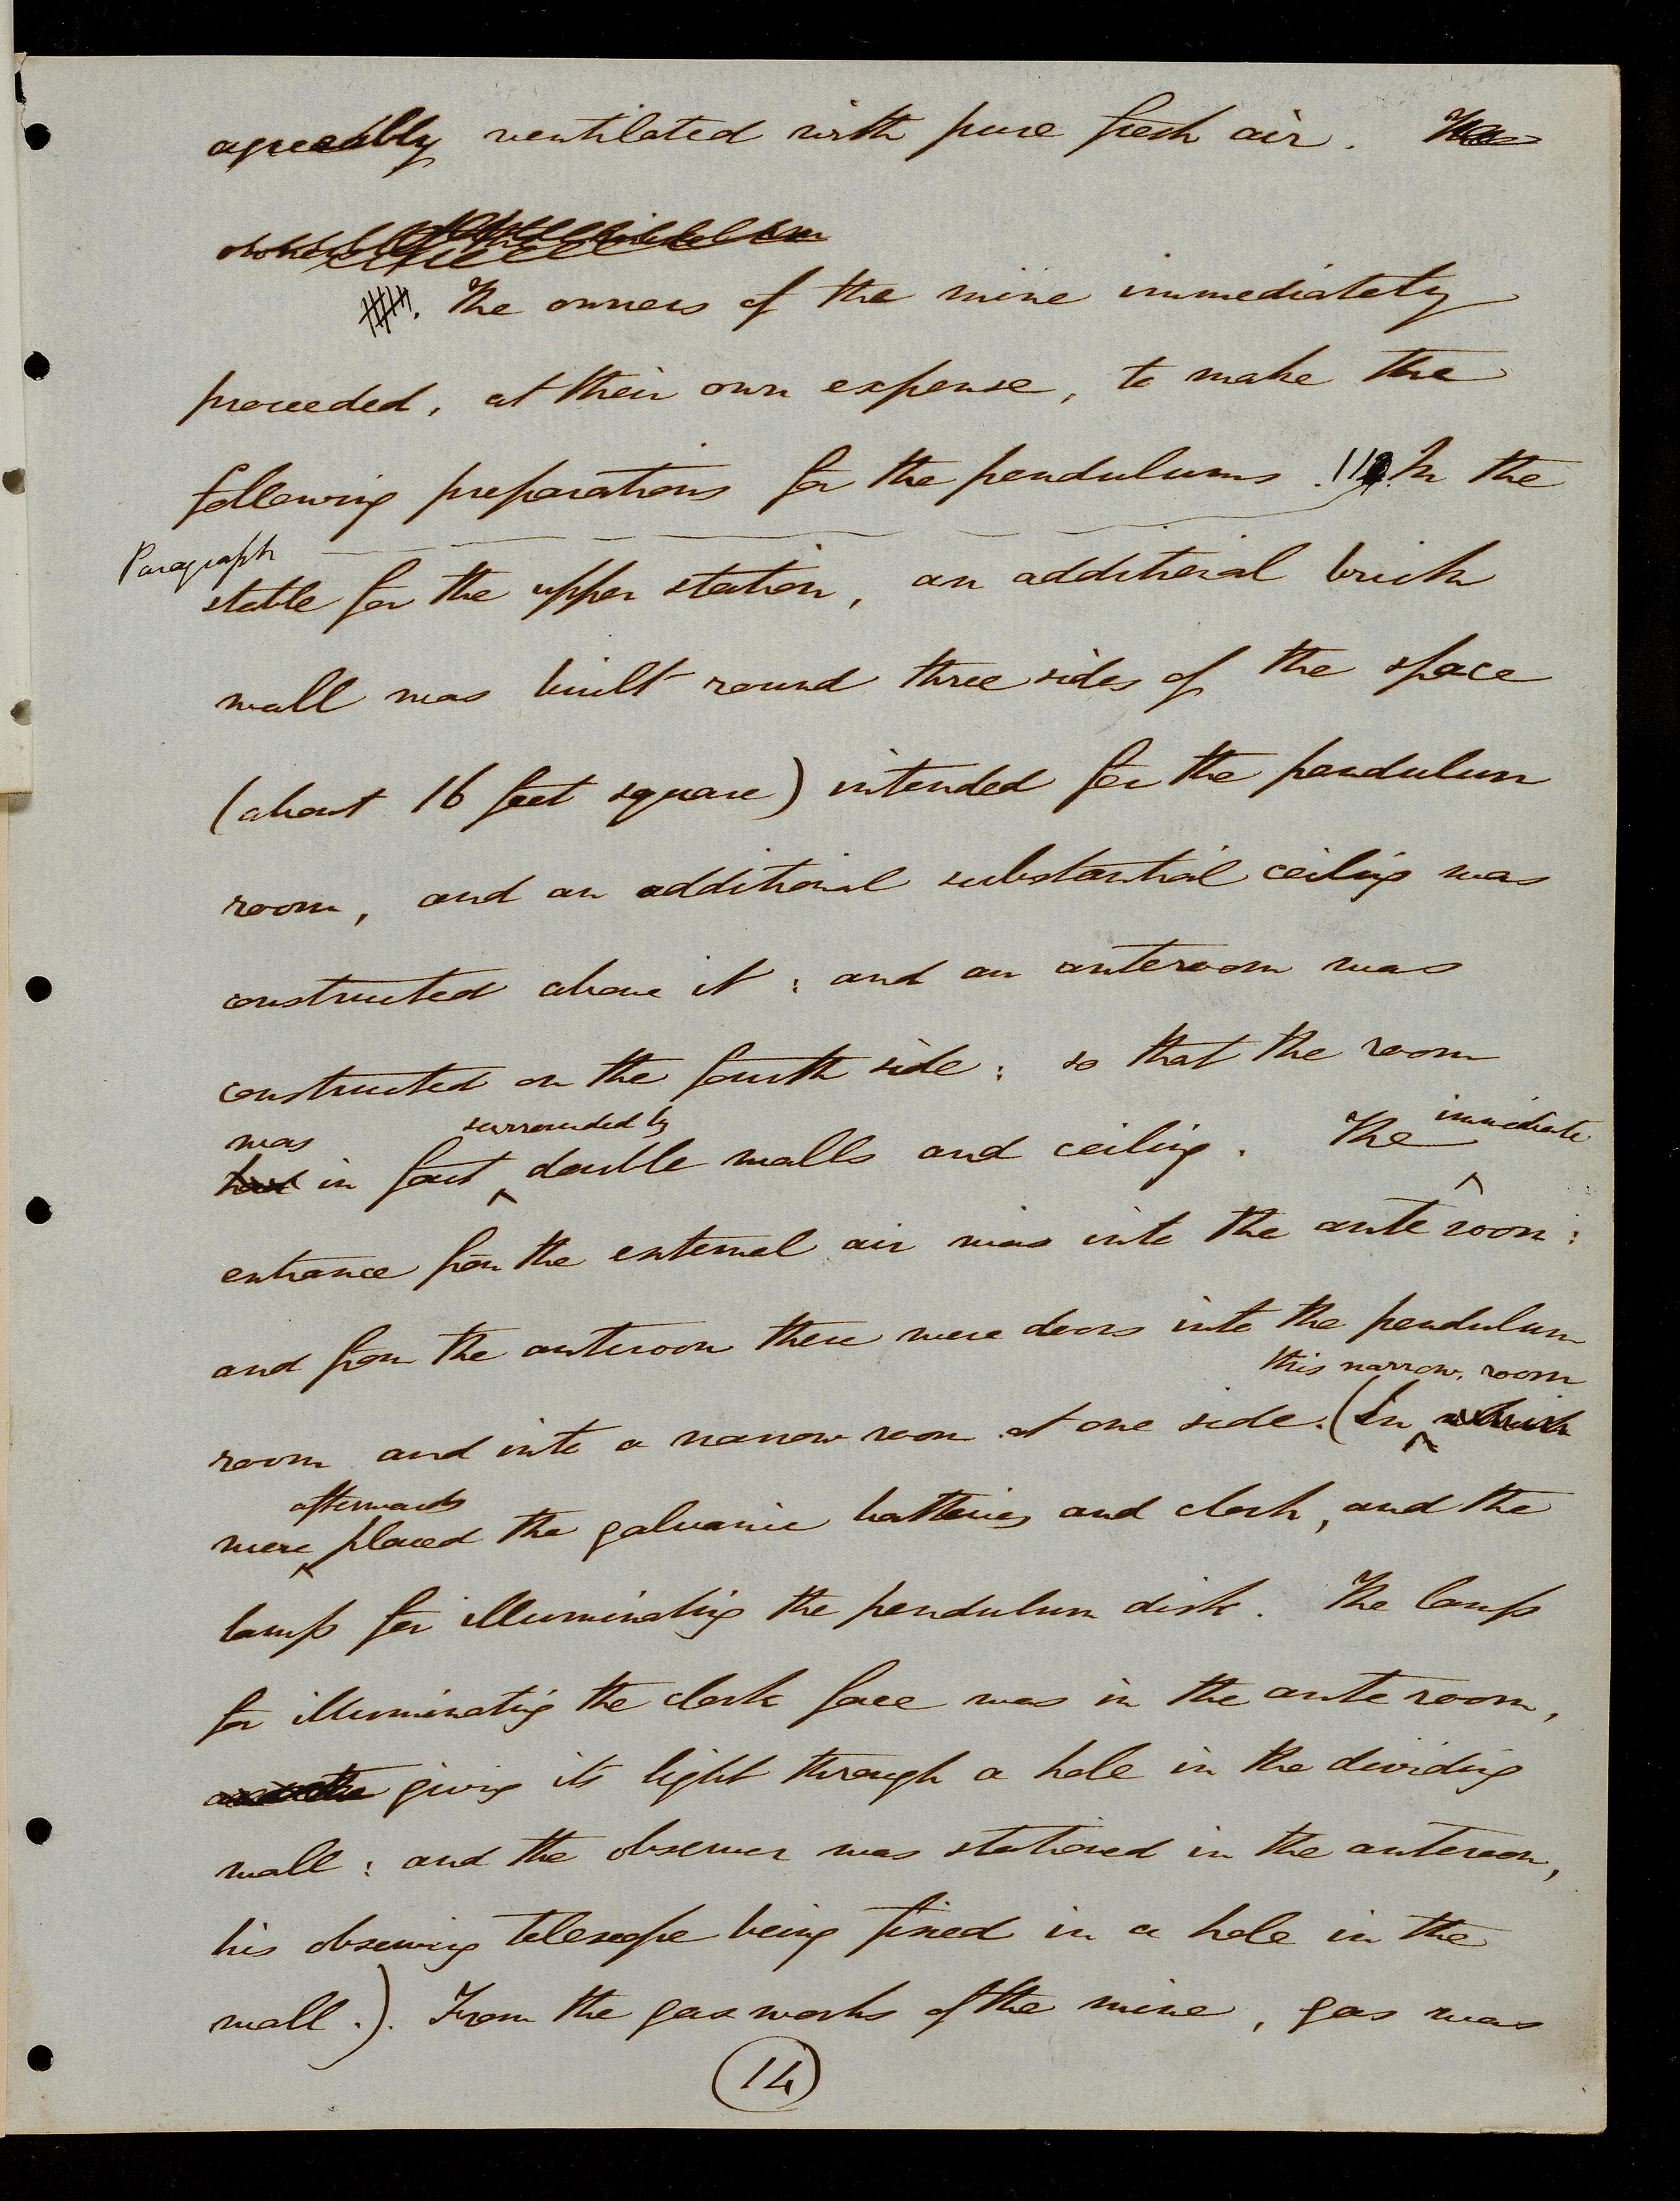 agreeably ventilated with pure fresh air.
The owners of the mine immediately
proceeded, at their own expense, to make the
following preparations for the pendulums. In the
Paragraph
stable for the upper station, an additional brick
wall was built round three sides of the space
(about 16 feet square) intended for the pendulum
room, and an additional substantial ceiling was
constructed above it: and an anteroom was
constructed on the fourth side: so that the room
was surrounded by immediate
had in fact double walls and ceiling. The
entrance from the external air was into the ante room:
and from the anteroom there were doors into the pendulum
this narrow room
room and into a narrow room at one side. (In which
afterwards
were placed the galvanic batteries and clock, and the
lamp for illuminating the pendulum disk. The lamp
for illuminating the clock face was in the ante room,
giving its light through a hole in the dividing
wall: and the observer was stationed in the anteroom,
his observing telescope being fixed in a hole in the
wall.). From the gas works of the mine, gas was
14